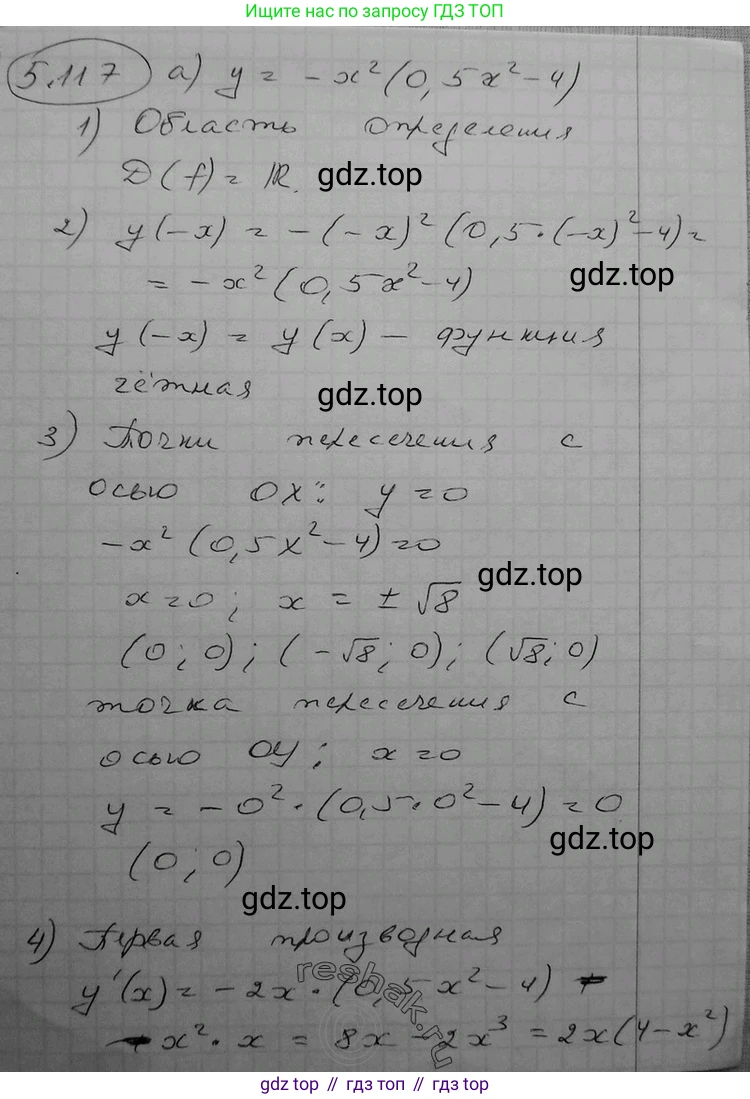 Ищите нас по запросу ГДЗ ТОП
5.117 а) y = -x²(0,5x²-4)
1) Область определения
D(f) = R.
gdz.top
2) y(-x) = -(-x)²(0,5·(-x)²-4) =
gdz.top
= -x²(0,5x²-4)
y(-x) = y(x) - функция
чётная
gdz.top
3) Точки пересечения с
осью OX: y=0
-x²(0,5x²-4)=0
gdz.top
x=0; x = ±√8
(0;0); (-√8;0); (√8;0)
точка пересечения с
осью OY; x=0
y = -0²·(0,5·0²-4)=0
gdz.top
(0;0)
gdz.top
4) Первая производная
reshak.ru
y'(x) = -2x·(0,5x²-4) -
- x²·x = 8x - 2x³ = 2x(4-x²)
gdz top // гдз топ // gdz top